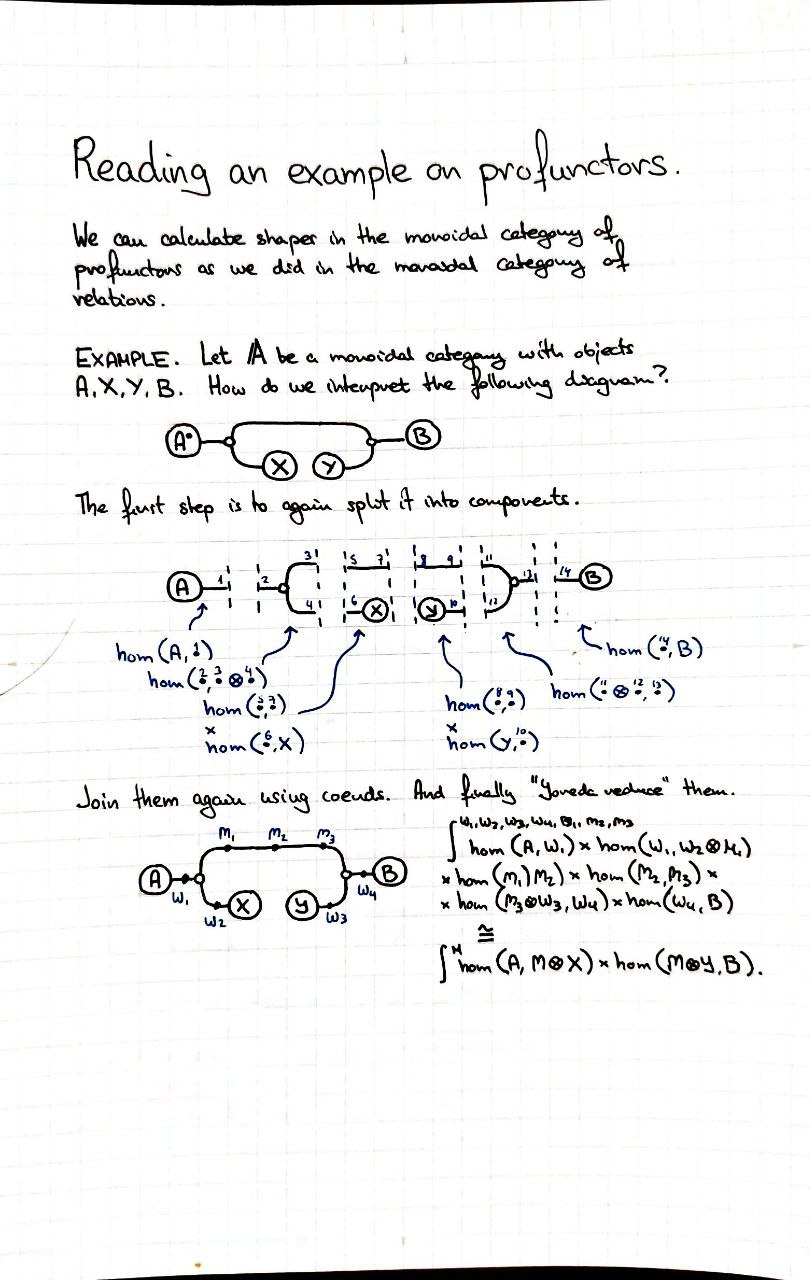 Reading an example on profunctors.
We can calculate shapes in the monoidal category of
profunctors as we did in the monoidal category of
relations.
EXAMPLE. Let 𝔸 be a monoidal category with objects
A, X, Y, B. How do we interpret the following diagram?
A B
X Y
The first step is to again split it into components.
3 5 7 8 9 11
A 1 2 13 14 B
4 6 X Y 10 12
hom (A, 1)
hom (2, 3 ⊗ 4)
hom (5, 7)
×
hom (6, X)
hom (8, 9)
×
hom (Y, 10)
hom (11 ⊗ 12, 13)
hom (14, B)
Join them again using coends. And finally "Yoneda reduce" them.
M₁ M₂ M₃
A B
W₁ W₄
X Y
W₂ W₃
∫ W₁, W₂, W₃, W₄, M₁, M₂, M₃
hom (A, W₁) × hom (W₁, W₂ ⊗ M₁)
× hom (M₁) M₂) × hom (M₂, M₃) ×
× hom (M₃ ⊗ W₃, W₄) × hom (W₄, B)
≅
∫ᴹ hom (A, M ⊗ X) × hom (M ⊗ Y, B).